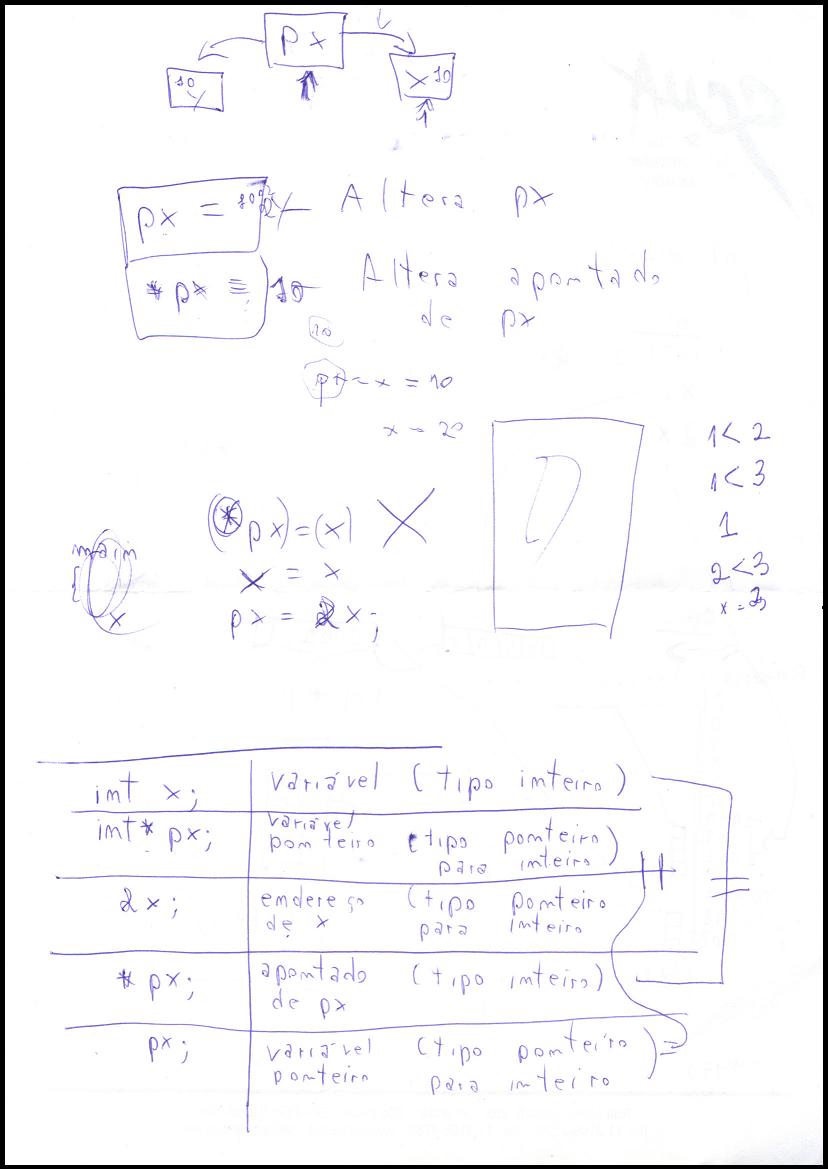 px
10
y
x 10
px = y Altera px
*px = 10 Altera apontado
de px
10
px - x = 10
x = 20
1 < 2
1 < 3
1
2 < 3
x =
(*px) = (x) X
main
{
x
x = x
px = &x;
int x; variável (tipo inteiro)
int* px; variável ponteiro (tipo ponteiro para inteiro)
&x; endereço de x (tipo ponteiro para inteiro
*px; apontado de px (tipo inteiro)
px; variável ponteiro (tipo ponteiro para inteiro) =